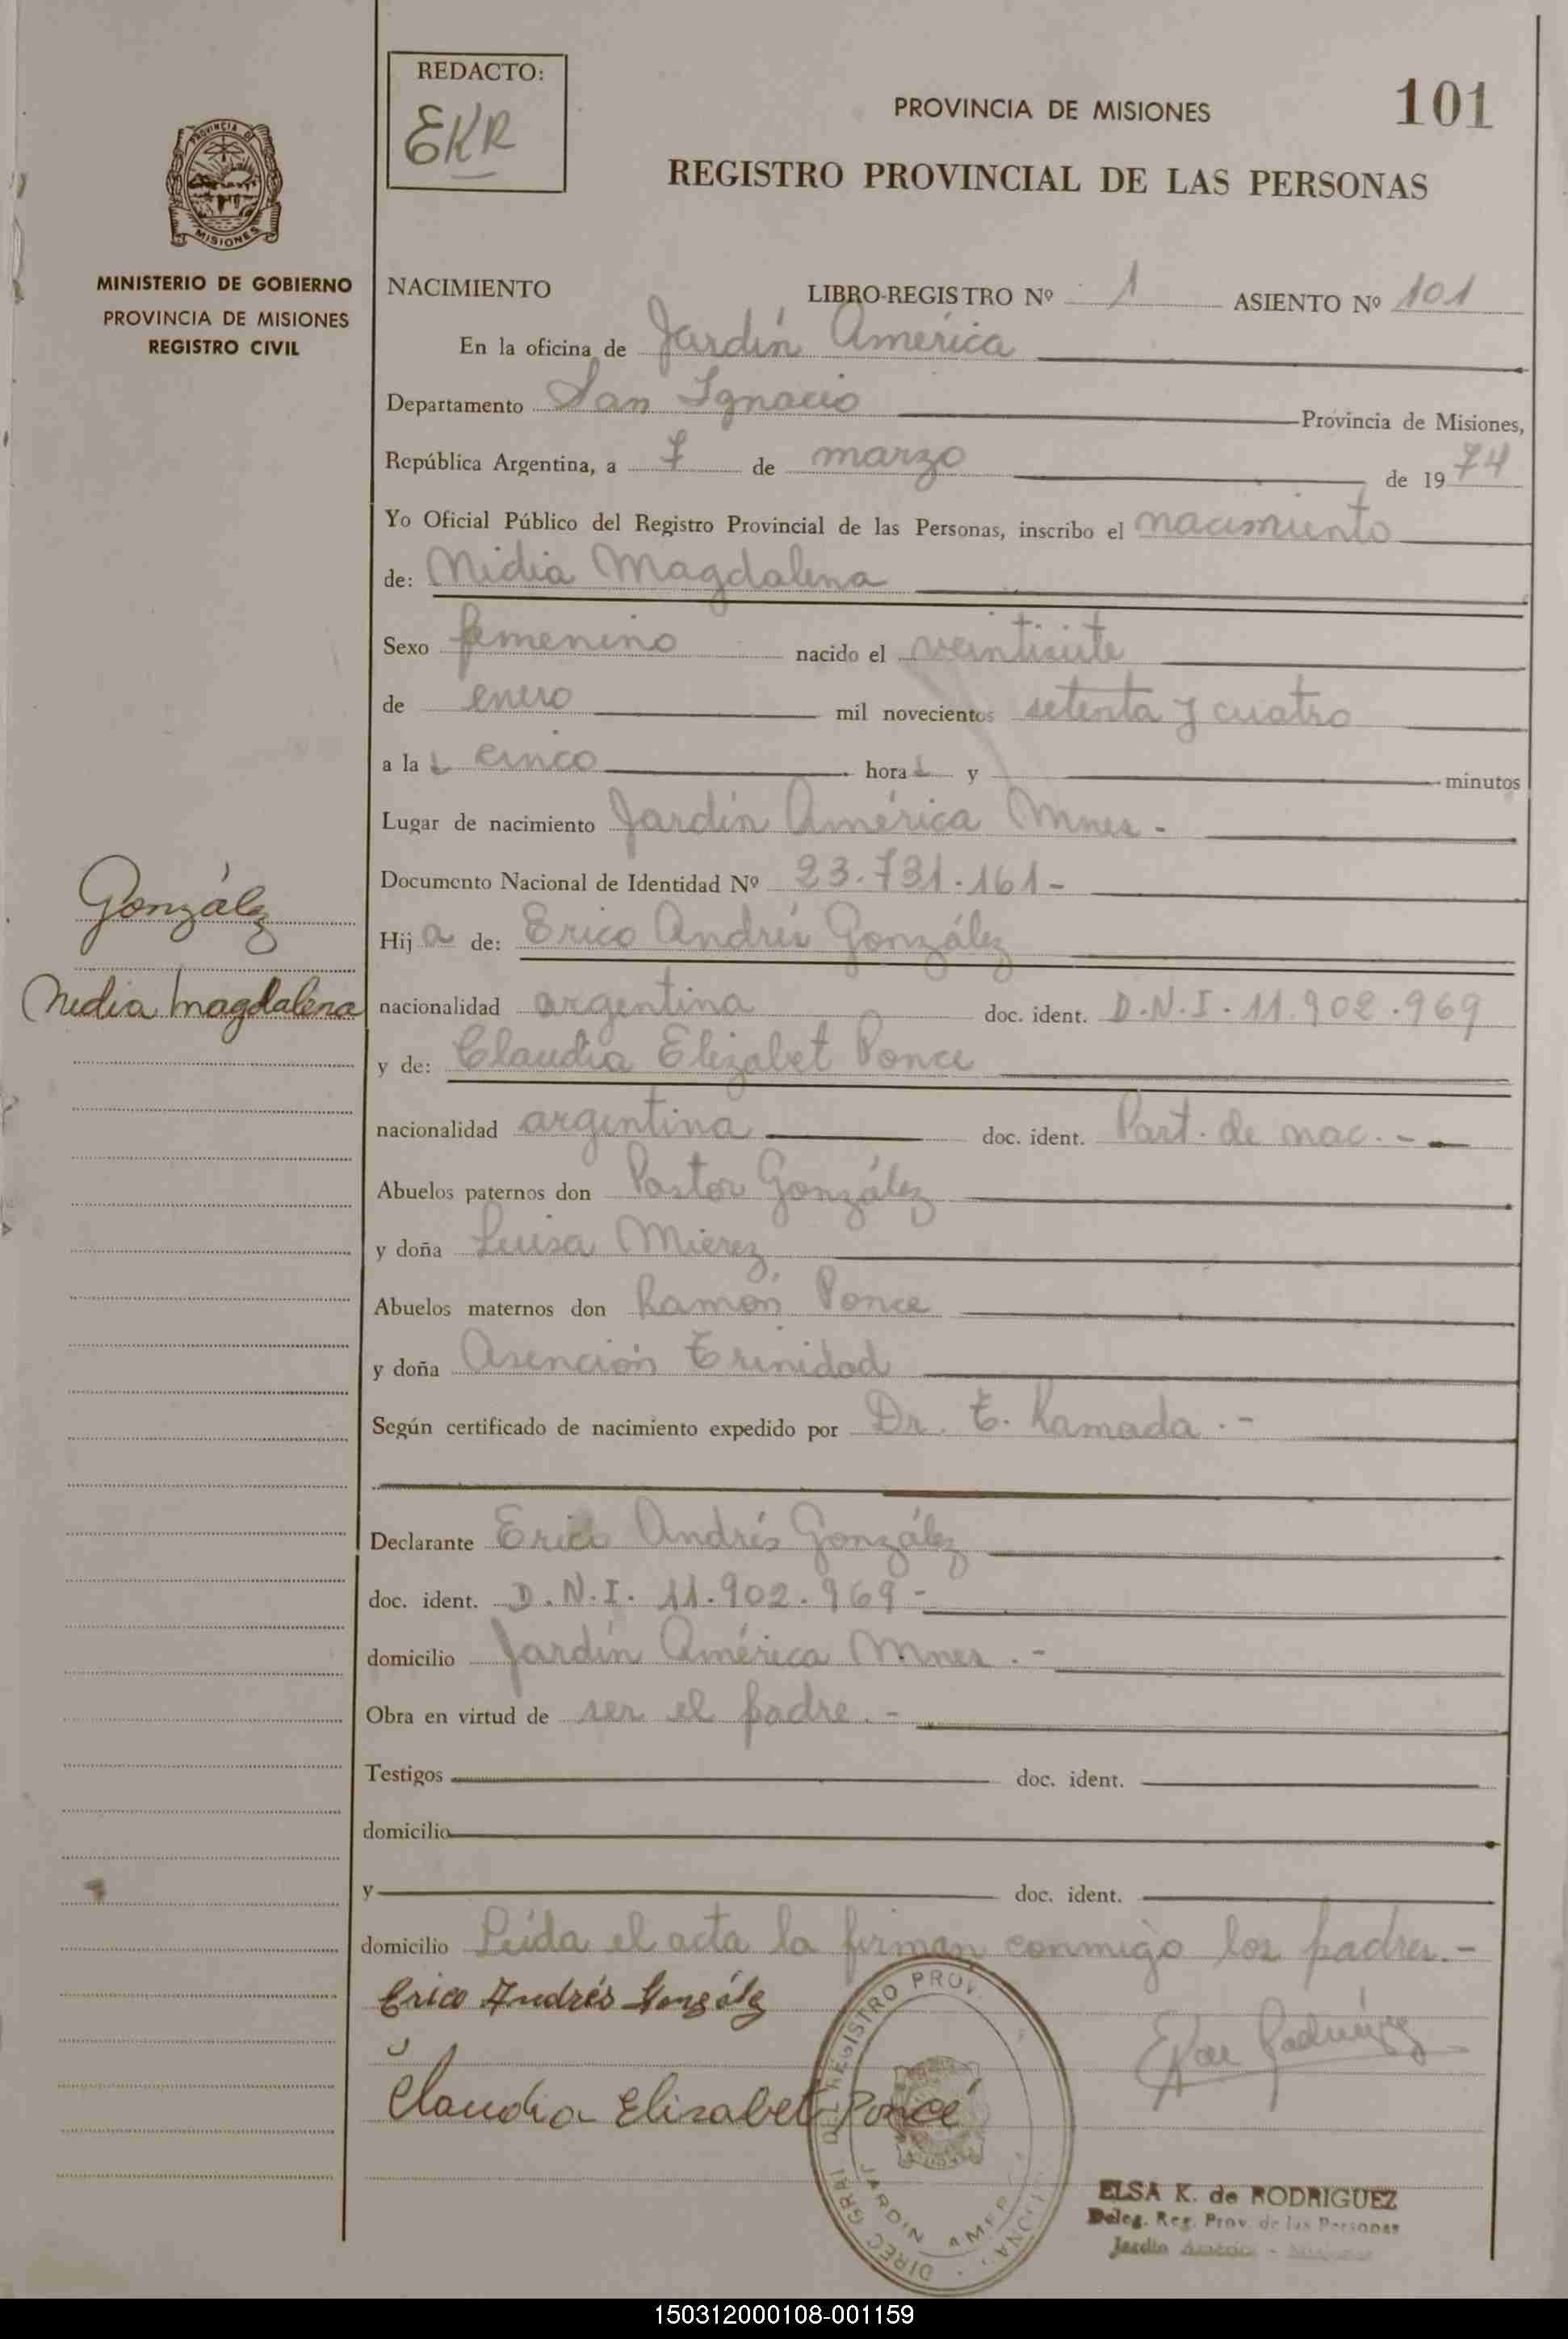 REDACTO:
EKR
PROVINCIA DE MISIONES
101
REGISTRO PROVINCIAL DE LAS PERSONAS
PROVINCIA DE
MISIONES
MINISTERIO DE GOBIERNO
PROVINCIA DE MISIONES
REGISTRO CIVIL
NACIMIENTO LIBRO-REGISTRO Nº 1 ASIENTO Nº 101
En la oficina de Jardín América
Departamento San Ignacio Provincia de Misiones,
República Argentina, a 7 de marzo de 1974
Yo Oficial Público del Registro Provincial de las Personas, inscribo el nacimiento
de: Nidia Magdalena
Sexo femenino nacido el veintisiete
de enero mil novecientos setenta y cuatro
a las cinco horas y minutos
Lugar de nacimiento Jardín América Mnes -
Documento Nacional de Identidad Nº 23.731.161-
González
Hija de: Erico Andrés González
Nidia Magdalena
nacionalidad argentina doc. ident. D.N.I. 11.902.969
y de: Claudia Elizabet Ponce
nacionalidad argentina doc. ident. Part. de nac. -
Abuelos paternos don Pastor González
y doña Luisa Mierez
Abuelos maternos don Ramón Ponce
y doña Asención Trinidad
Según certificado de nacimiento expedido por Dr. T. Kamada .-
Declarante Erico Andrés González
doc. ident. D.N.I. 11.902.969-
domicilio Jardín América Mnes .-
Obra en virtud de ser el padre .-
Testigos doc. ident.
domicilio
y doc. ident.
domicilio Leída el acta la firman conmigo los padres.-
Erico Andrés González
Claudia Elisabet Ponce
DIREC GRAL DEL REGISTRO PROV.
JARDIN AMER
ELSA K. de RODRIGUEZ
Deleg. Reg. Prov. de las Personas
Jardín América - Misiones
150312000108-001159